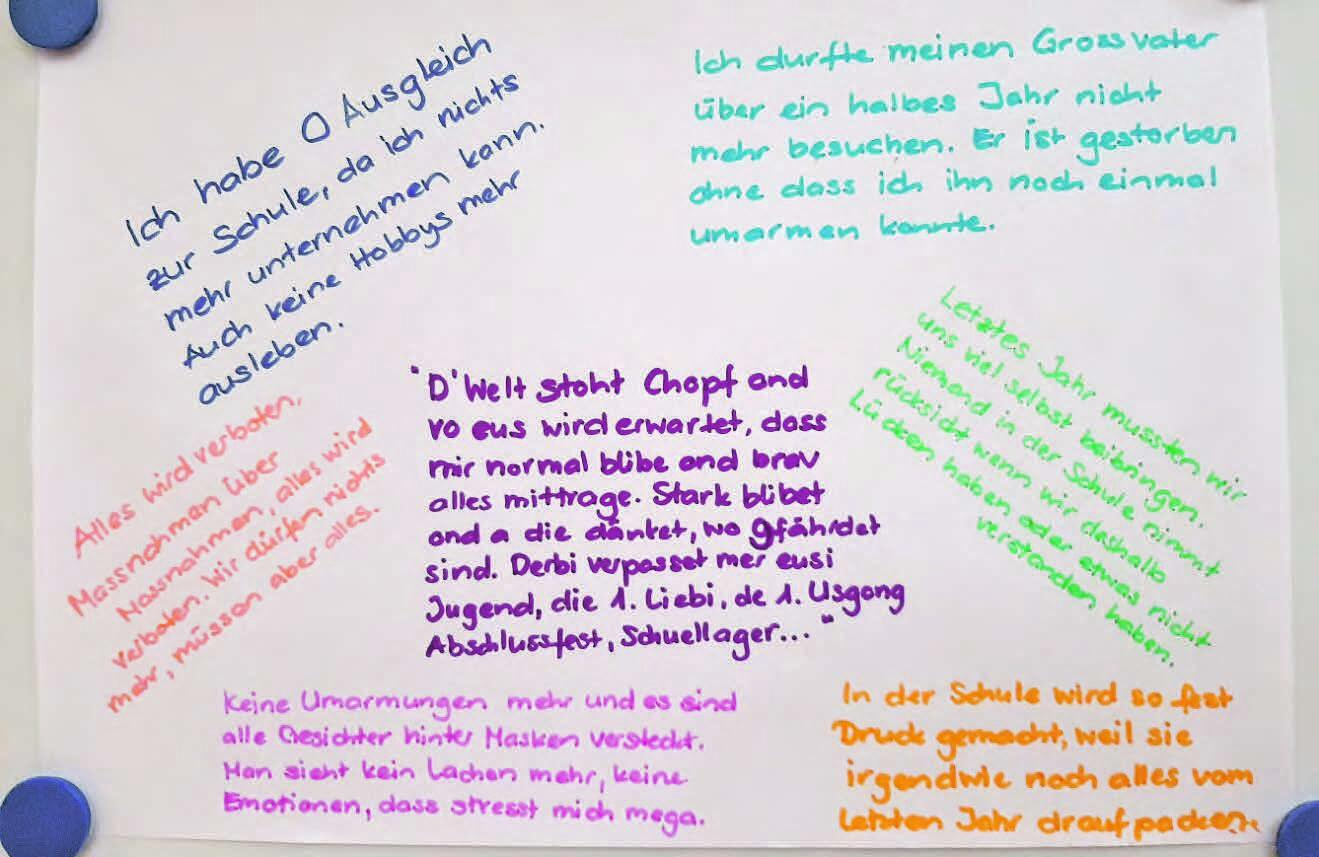 Ich habe 0 Ausgleich
zur Schule, da ich nichts
mehr unternehmen kann.
Auch keine Hobbys mehr
ausleben.
Ich durfte meinen Grossvater
über ein halbes Jahr nicht
mehr besuchen. Er ist gestorben
ohne dass ich ihn noch einmal
umarmen konnte.
Alles wird verboten,
Massnahmen über
Massnahmen, alles wird
verboten. Wir dürfen nichts
mehr, müssen aber alles.
"D'Welt stoht Chopf and
vo eus wird erwartet, dass
mir normal blibe and brav
alles mittrage. Stark blibet
and a die dänket, wo gfährdet
sind. Derbi verpasset mer eusi
Jugend, die 1. Liebi, de 1. Usgong
Abschlussfest, Schuellager..."
Letztes Jahr mussten wir
uns viel selbst beibringen.
Niemand in der Schule nimmt
rücksicht wenn wir deshalb
Lücken haben oder etwas nicht
verstanden haben.
Keine Umarmungen mehr und es sind
alle Gesichter hinter Masken versteckt.
Man sieht kein Lachen mehr, keine
Emotionen, dass stresst mich mega.
In der Schule wird so fest
Druck gemacht, weil sie
irgendwie noch alles vom
letzten Jahr draufpacken.